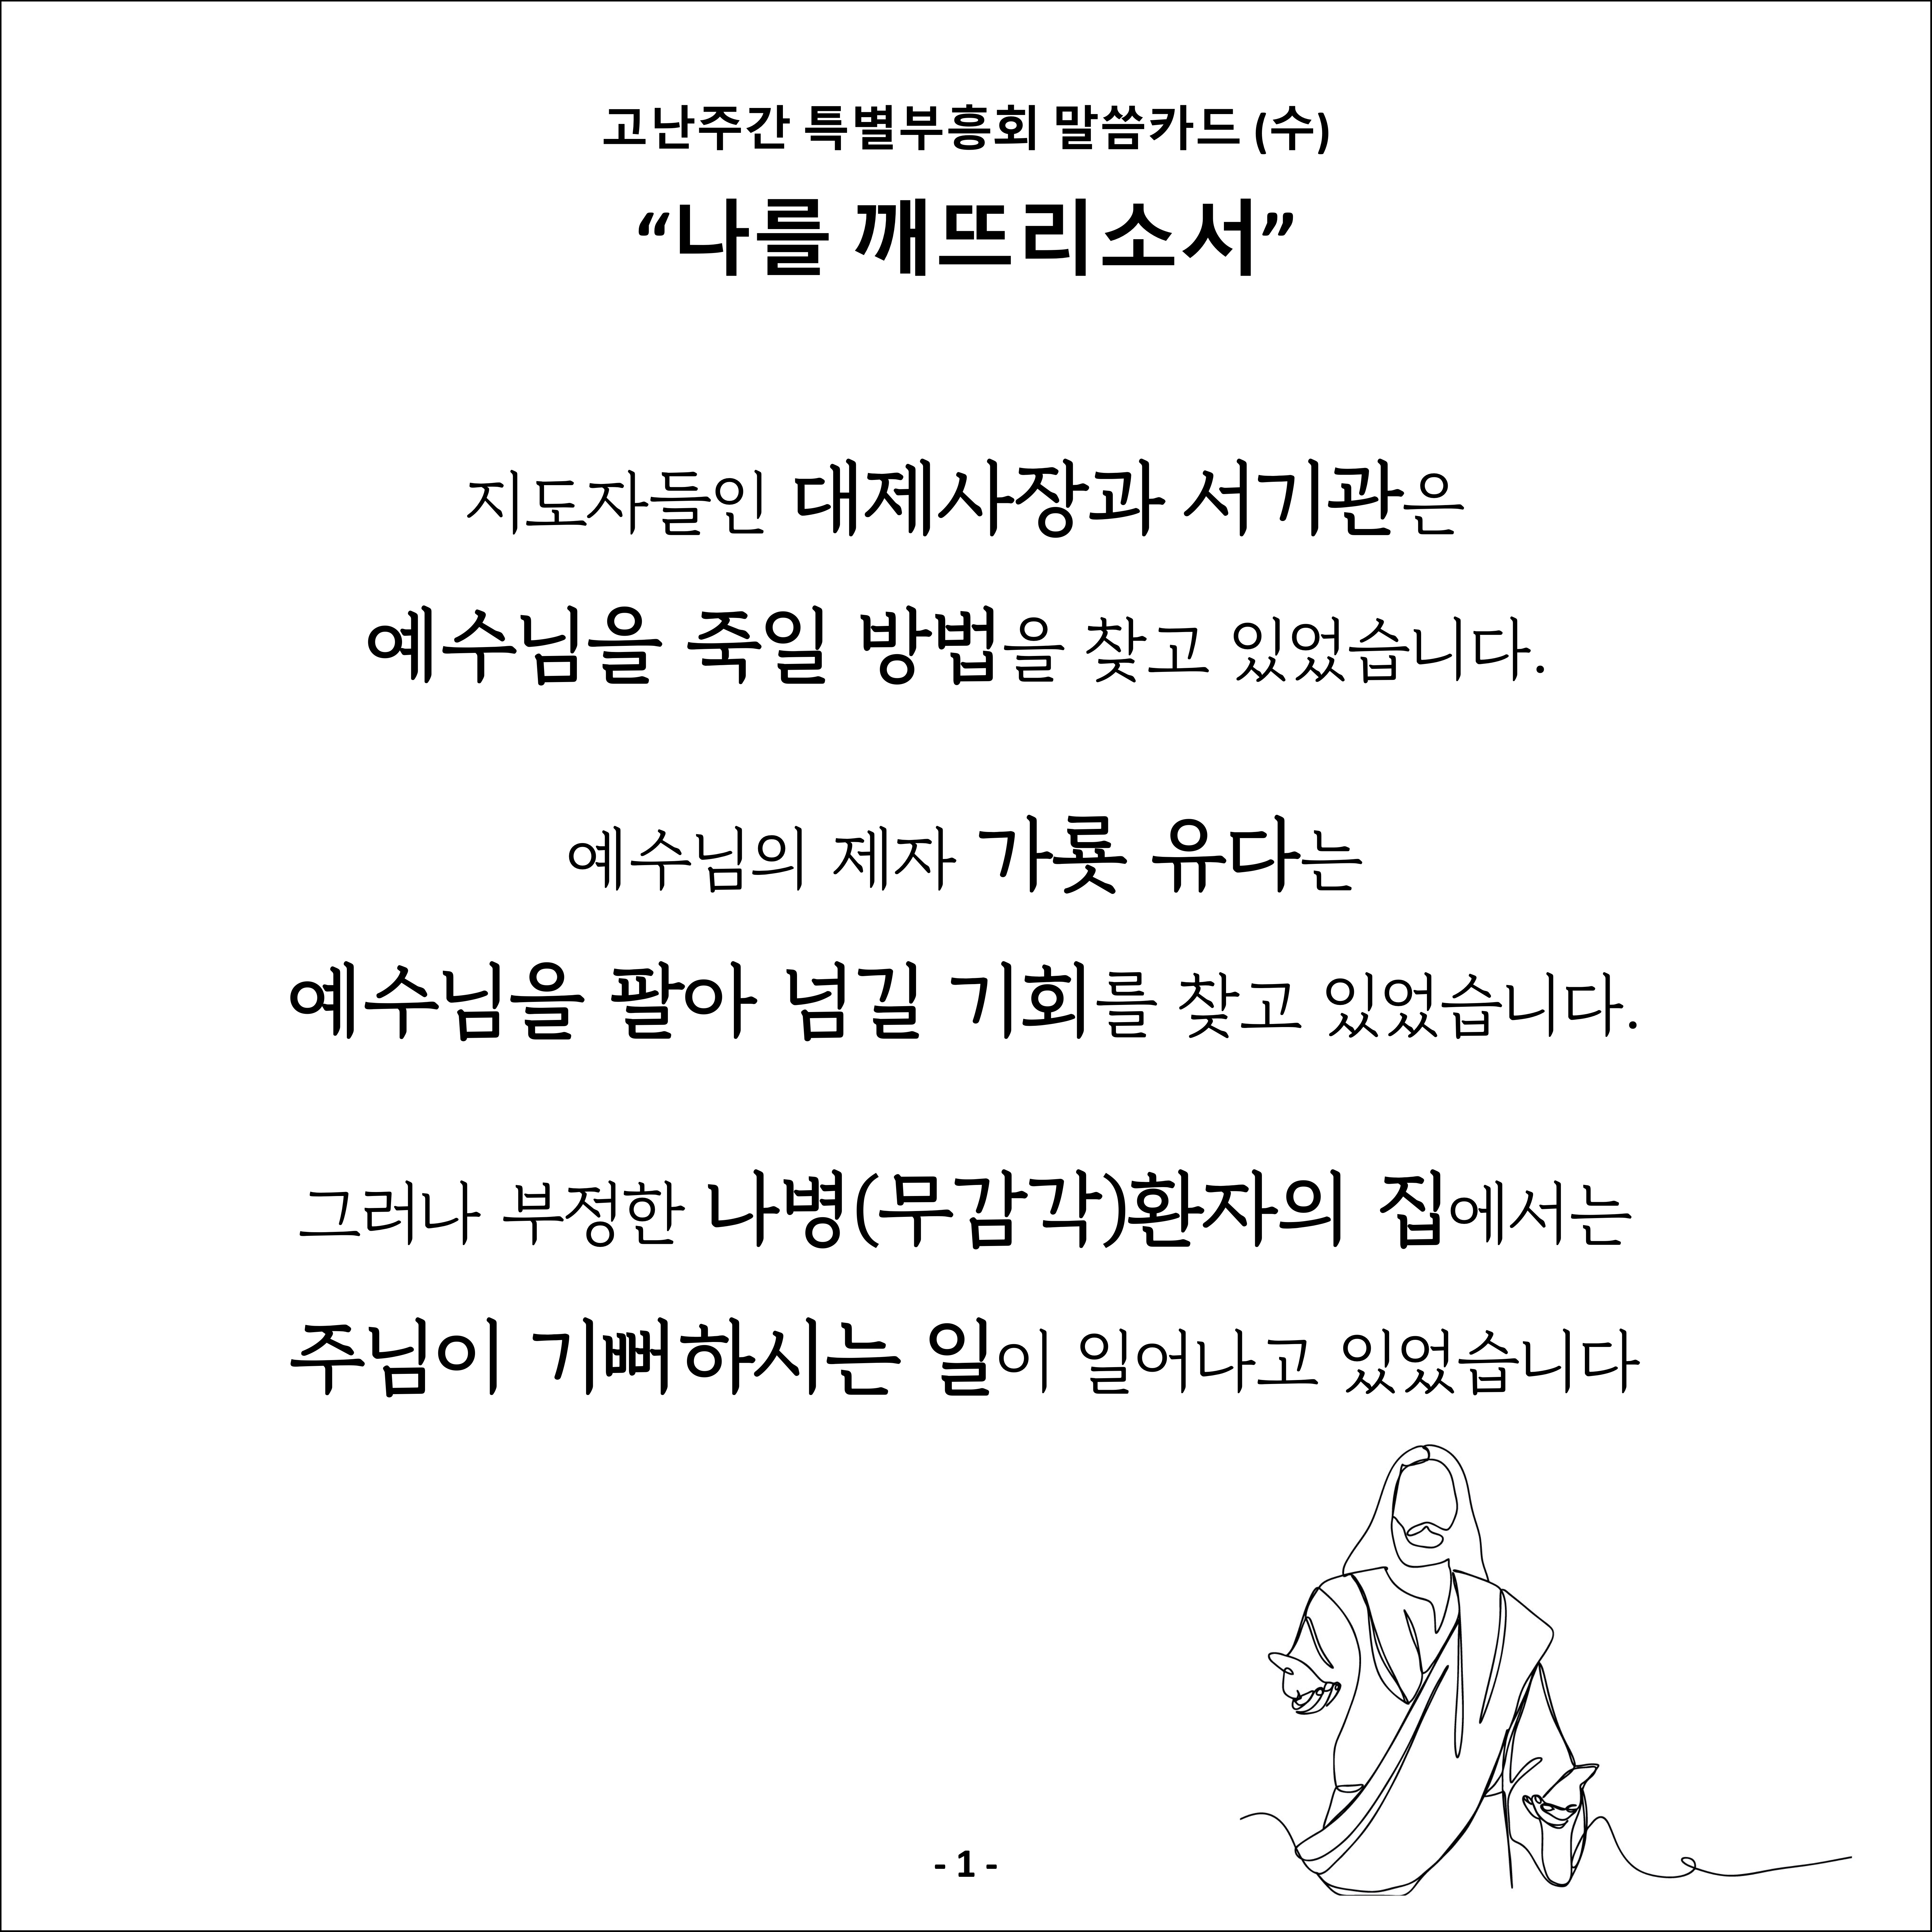 고난주간 특별부흥회 말씀카드 (수)
“나를 깨뜨리소서”
지도자들인 대제사장과 서기관은
예수님을 죽일 방법을 찾고 있었습니다.
예수님의 제자 가룟 유다는
예수님을 팔아 넘길 기회를 찾고 있었습니다.
그러나 부정한 나병(무감각)환자의 집에서는
주님이 기뻐하시는 일이 일어나고 있었습니다
- 1 -